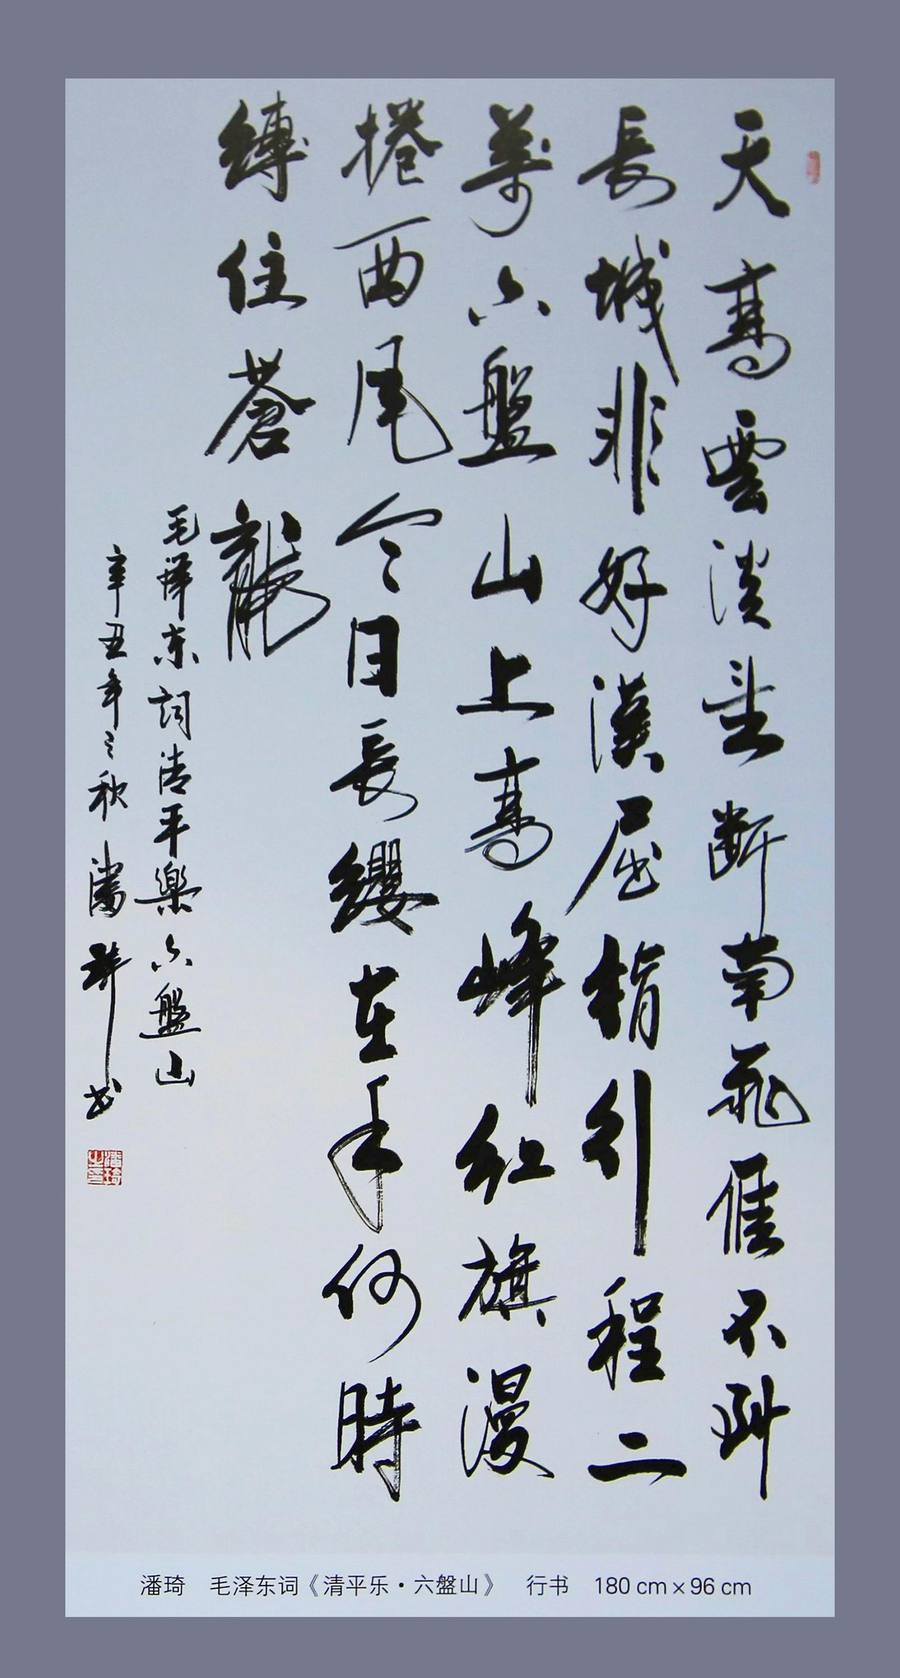 天高雲淡望斷南飛雁不到
長城非好漢屈指行程二
萬六盤山上高峰紅旗漫
捲西風今日長纓在手何時
縛住蒼龍
毛泽东詞清平樂六盤山
辛丑年之秋潘琦书
潘琦 毛泽东词《清平乐·六盤山》 行书 180 cm × 96 cm